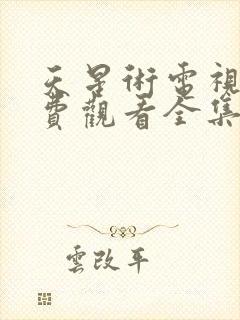 天星術電視
費觀看全集
雲改平